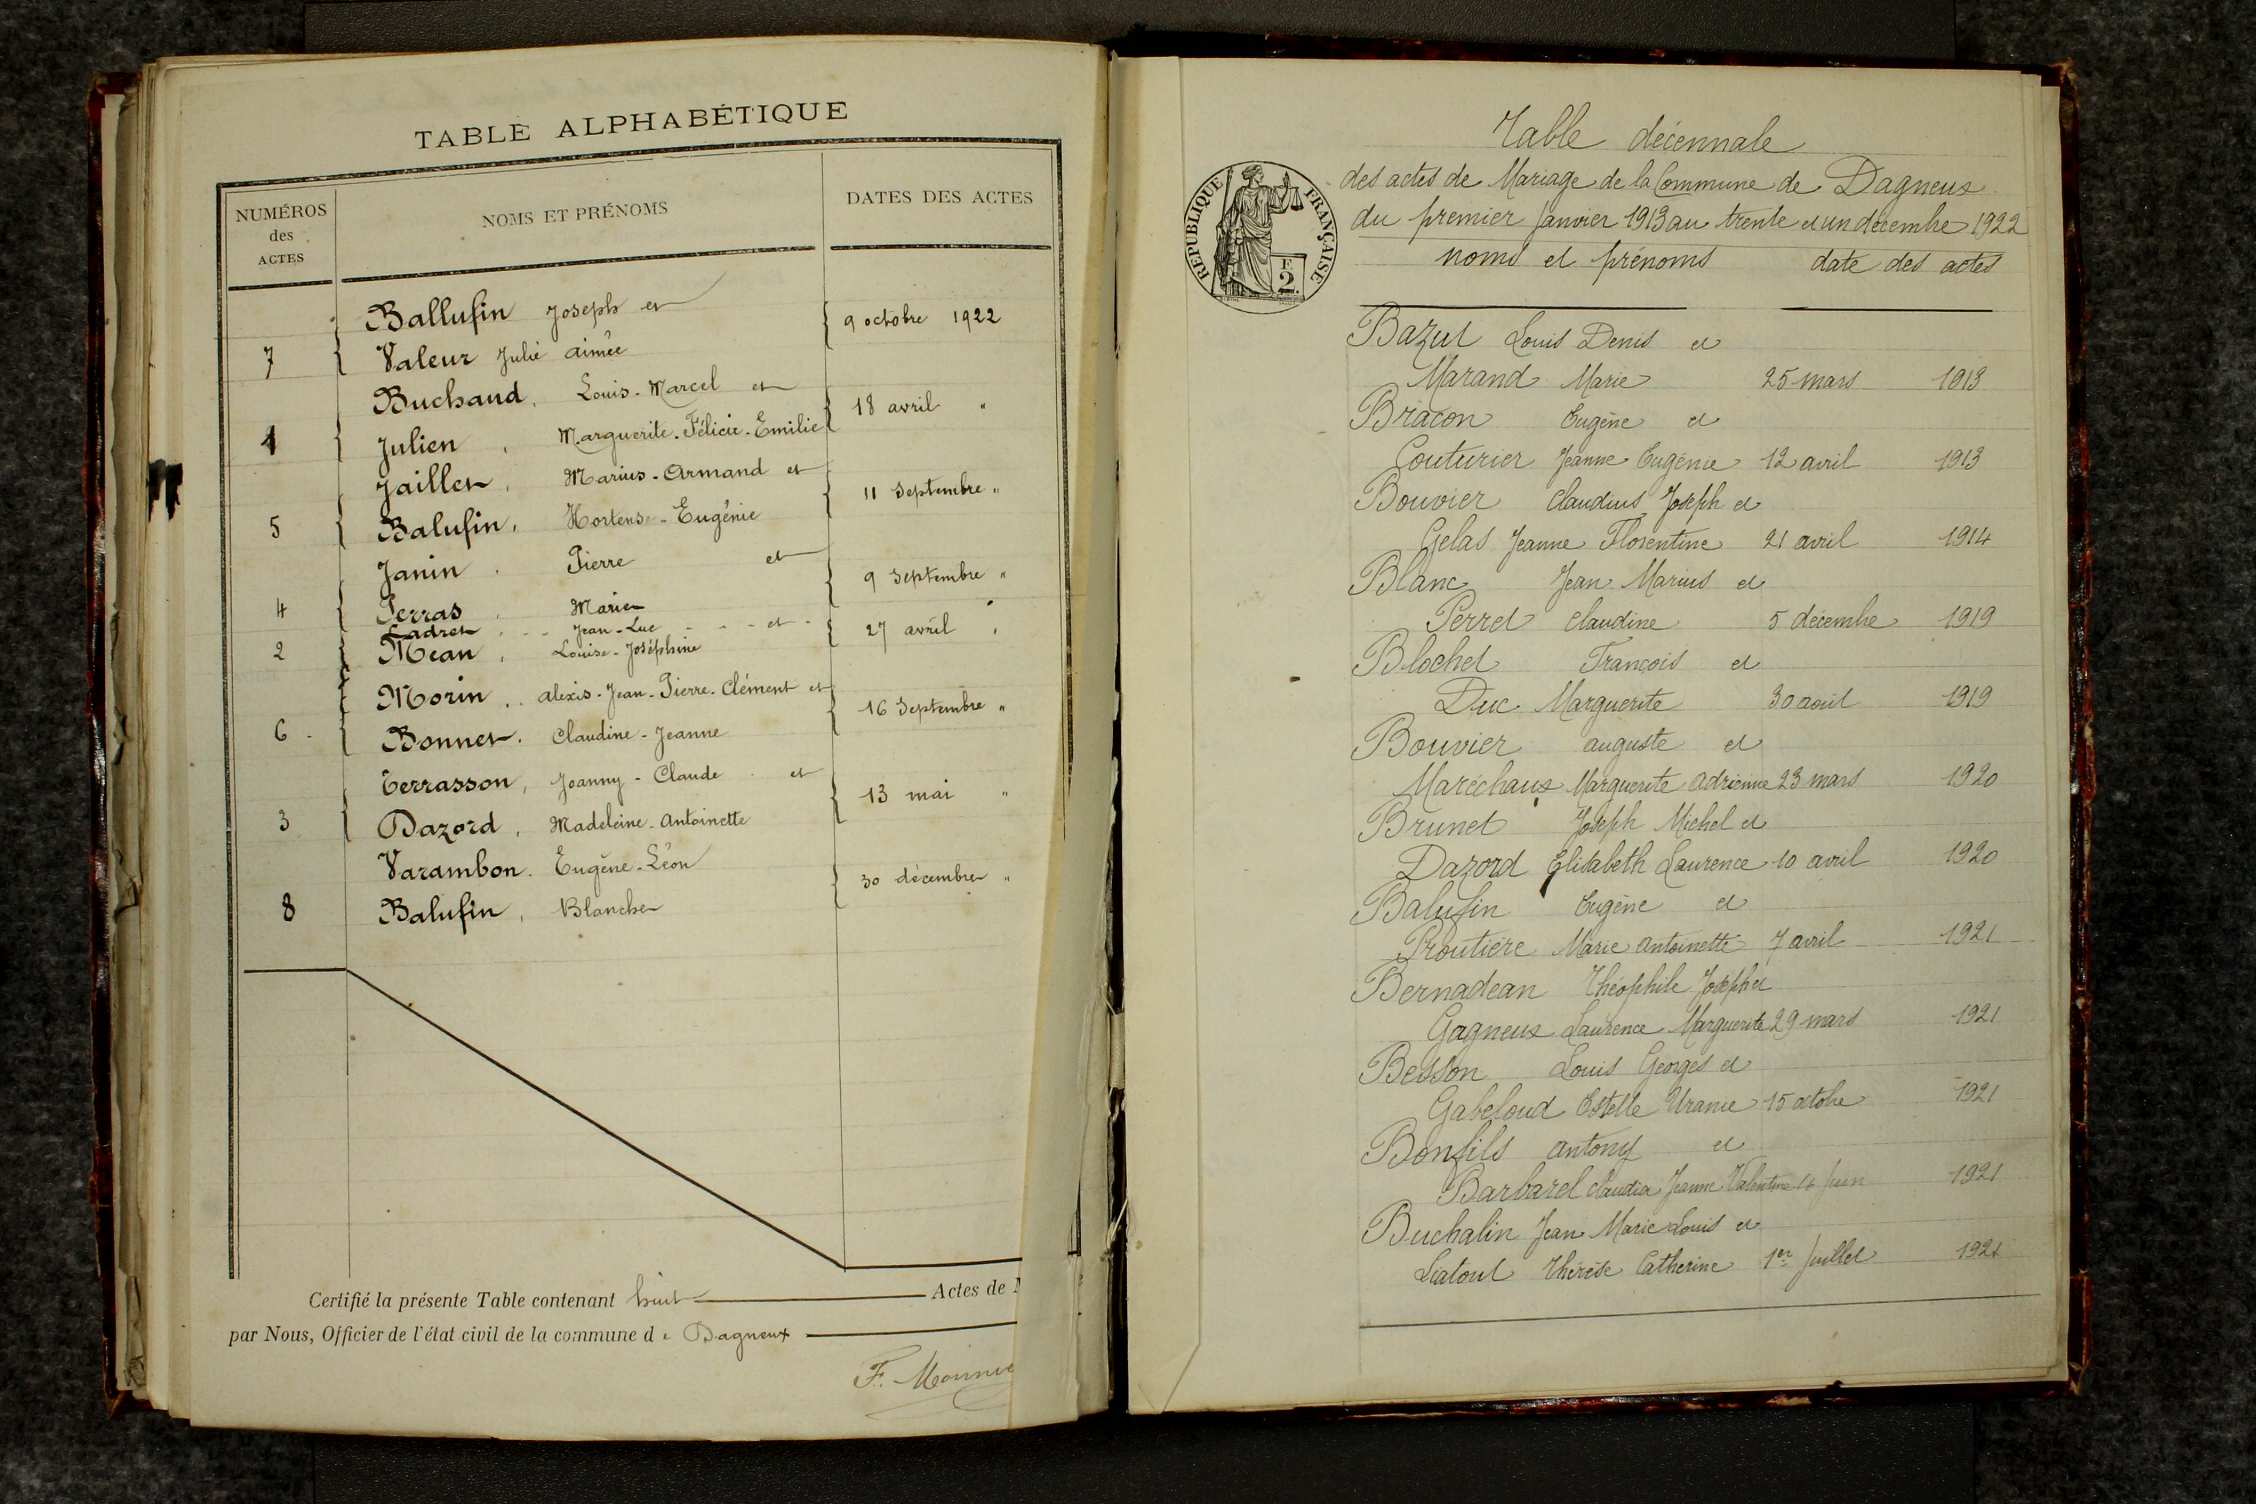 TABLE ALPHABÉTIQUE
NUMÉROS des ACTES
NOMS ET PRÉNOMS
DATES DES ACTES
Ballufin Joseph et
9 octobre 1922
7 Valeur Julie aimée
Buchaud, Louis-Marcel et
18 avril "
1 Julien, Marguerite-Félicie-Emilie
Jaillet, Marius-Armand et
11 Septembre "
5 Balufin, Hortense-Eugénie
Janin, Pierre et
9 Septembre "
4 Perras, Marie
Ladret, Jean-Luc et
27 avril "
2 Mean, Louise-Joséphine
Morin, Alexis-Jean-Pierre-Clément et
16 Septembre "
6 Bonnet, Claudine-Jeanne
Terrasson, Joanny-Claude et
13 mai "
3 Dazord, Madeleine-Antoinette
Varambon, Eugène-Léon
30 décembre "
8 Balufin, Blanche
Certifié la présente Table contenant huit Actes de
par Nous, Officier de l'état civil de la commune de Dagneux
RÉPUBLIQUE FRANÇAISE
2F.
Table décennale
des actes de Mariage de la Commune de Dagneux
du premier Janvier 1913 au trente et un décembre 1922
noms et prénoms date des actes
Bazut Louis Denis et
Marand Marie 25 mars 1913
Bracon Eugène et
Couturier Jeanne Eugénie 12 avril 1913
Bouvier Claudius Joseph et
Gelas Jeanne Florentine 21 avril 1914
Blanc Jean Marius et
Perret Claudine 5 décembre 1919
Blochet François et
Duc Marguerite 30 août 1919
Bouvier auguste et
Maréchaux Marguerite Adrienne 23 mars 1920
Brunet Joseph Michel et
Dazord Elisabeth Laurence 10 avril 1920
Balufin Eugène et
Proutière Marie Antoinette 7 avril 1921
Bernadean Théophile Joseph et
Gagneux Laurence Marguerite 29 mars 1921
Besson Louis Georges et
Gabeloud Estelle Uranie 15 octobre 1921
Bonfils antony et
Barbarel Claudia Jeanne Valentine 14 Juin 1921
Buchalin Jean Marie Louis et
Liatout Thérèse Catherine 1er Juillet 1921